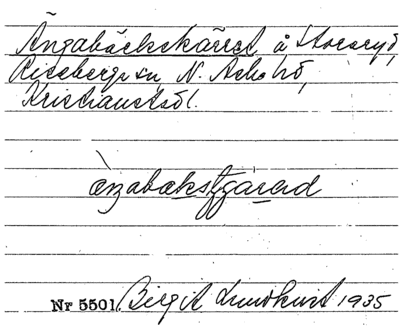 Ängabäckskärret å Storaryd,
Riseberga sn N. Åsbo hd,
Kristianstads l.
Nr 5501. Birgit Lundkvist 1935